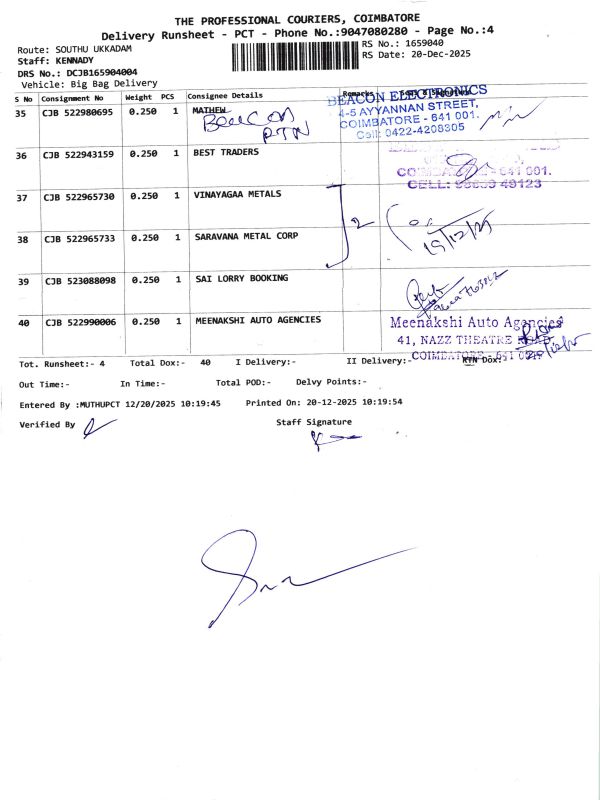 THE PROFESSIONAL COURIERS, COIMBATORE
Delivery Runsheet - PCT - Phone No.:9047080280 - Page No.:4
Route: SOUTHU UKKADAM
RS No.: 1659040
Staff: KENNADY
RS Date: 20-Dec-2025
DRS No.: DCJB165904004
Vehicle: Big Bag Delivery
S No Consignment No Weight PCS Consignee Details Remarks
35 CJB 522980695 0.250 1 MATHEW
Beacon
RTN
BEACON ELECTRONICS
4-5 AYYANNAN STREET,
COIMBATORE - 641 001.
Cell: 0422-4208305
36 CJB 522943159 0.250 1 BEST TRADERS
COIMBATORE - 641 001.
CELL: 49123
37 CJB 522965730 0.250 1 VINAYAGAA METALS
2
38 CJB 522965733 0.250 1 SARAVANA METAL CORP
39 CJB 523088098 0.250 1 SAI LORRY BOOKING
40 CJB 522990006 0.250 1 MEENAKSHI AUTO AGENCIES
Meenakshi Auto Agencies
41, NAZZ THEATRE ROAD,
COIMBATORE - 641
Tot. Runsheet:- 4 Total Dox:- 40 I Delivery:- II Delivery:- RTN Dox:-
Out Time:- In Time:- Total POD:- Delvy Points:-
Entered By :MUTHUPCT 12/20/2025 10:19:45 Printed On: 20-12-2025 10:19:54
Verified By
Staff Signature